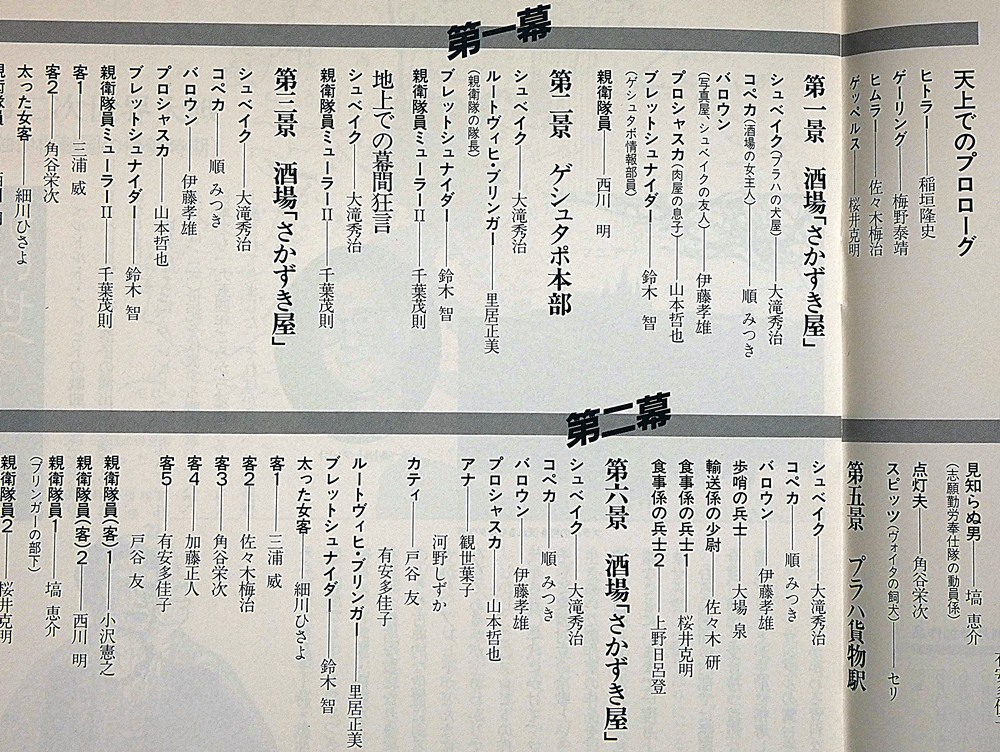 第一幕
天上でのプロローグ
ヒトラー――稲垣隆史
ゲーリング――梅野泰靖
ヒムラー――佐々木梅治
ゲッベルス――桜井克明
第一景　酒場「さかずき屋」
シュベイク(プラハの犬屋)――大滝秀治
コペカ(酒場の女主人)――順　みつき
バロウン
(写真屋、シュベイクの友人)――伊藤孝雄
プロシャスカ(肉屋の息子)――山本哲也
ブレットシュナイダー――鈴木　智
(ゲシュタポ情報部員)
親衛隊員――西川　明
第二景　ゲシュタポ本部
シュベイク――大滝秀治
ルートヴィヒ・ブリンガー――里居正美
(親衛隊の隊長)
ブレットシュナイダー――鈴木　智
親衛隊員ミューラーⅡ――千葉茂則
地上での幕間狂言
シュベイク――大滝秀治
親衛隊員ミューラーⅡ――千葉茂則
第三景　酒場「さかずき屋」
シュベイク――大滝秀治
コペカ――順　みつき
バロウン――伊藤孝雄
プロシャスカ――山本哲也
ブレットシュナイダー――鈴木　智
親衛隊員ミューラーⅡ――千葉茂則
客1――三浦　威
客2――角谷栄次
太った女客――細川ひさよ
第二幕
見知らぬ男――塙　恵介
(志願勤労奉仕隊の動員係)
点灯夫――角谷栄次
スピッツ(ヴォイタの飼犬)――セリ
第五景　プラハ貨物駅
シュベイク――大滝秀治
コペカ――順　みつき
バロウン――伊藤孝雄
歩哨の兵士――大場　泉
輸送係の少尉――佐々木　研
食事係の兵士1――桜井克明
食事係の兵士2――上野日呂登
第六景　酒場「さかずき屋」
シュベイク――大滝秀治
コペカ――順　みつき
バロウン――伊藤孝雄
プロシャスカ――山本哲也
アナ――観世葉子
河野しずか
カティ――戸谷　友
有安多佳子
ルートヴィヒ・ブリンガー――里居正美
ブレットシュナイダー――鈴木　智
太った女客――細川ひさよ
客1――三浦　威
客2――佐々木梅治
客3――角谷栄次
客4――加藤正人
客5――有安多佳子
戸谷　友
親衛隊員(客)1――小沢憲之
親衛隊員(客)2――西川　明
親衛隊員1――塙　恵介
(ブリンガーの部下)
親衛隊員2――桜井克明